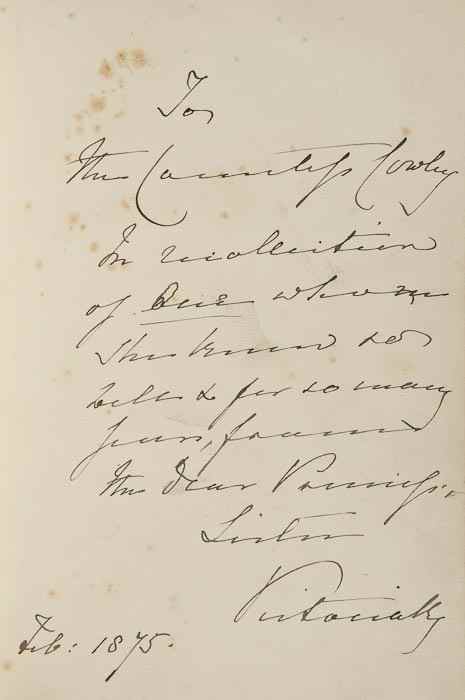 To
the Countess Cowley
In recollection
of One whom
She knew so
well & for so many
years, from
the dear Princess's
Sister
Victoria
Feb: 1875.